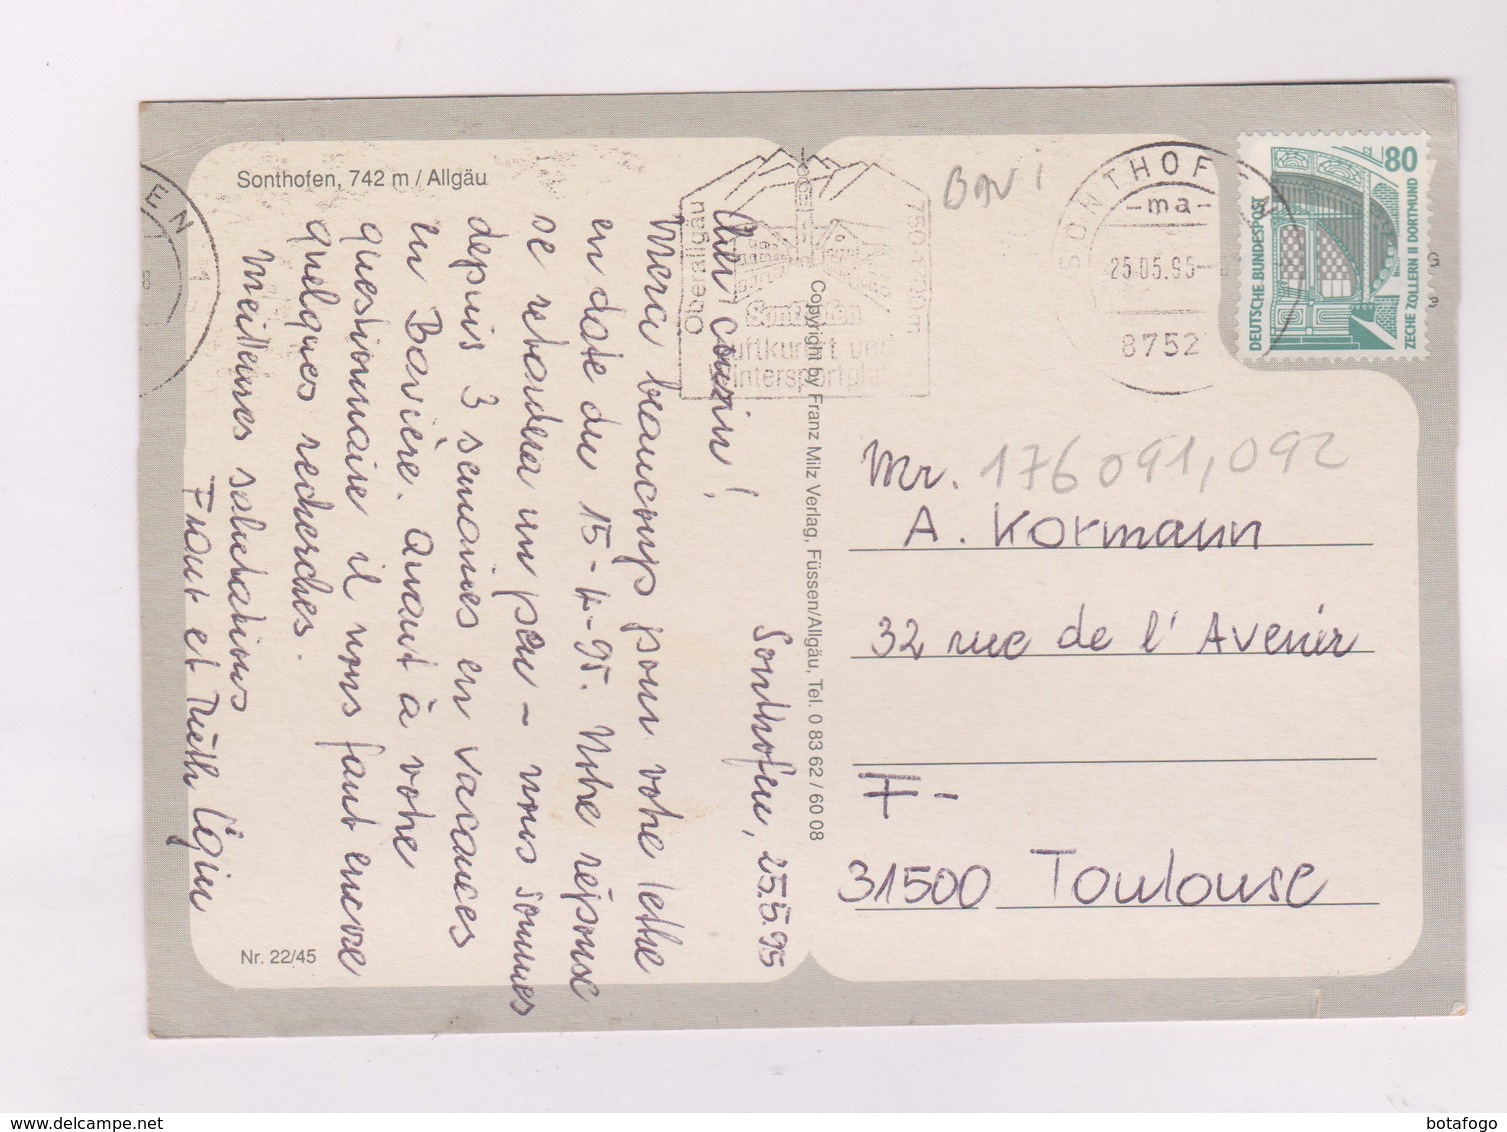 Sonthofen, 742 m / Allgäu
Sonthofen, 25.5.95
Cher cousin!
Merci beaucoup pour votre lettre
en date du 15-4-95. Notre réponse
se retardera un peu - nous sommes
depuis 3 semaines en vacances
en Bavière. Quant à votre
questionnaire il nous faut encore
quelques recherches.
Meilleures salutations
et
Nr. 22/45
Copyright by Franz Milz Verlag, Füssen/Allgäu, Tel. 0 83 62 / 60 08
Oberallgäu
750-1100m
Sonthofen
Luftkurort und
Wintersportplatz
SONTHOFEN
-ma-
25.05.95
8752
80
DEUTSCHE BUNDESPOST
ZECHE ZOLLERN II DORTMUND
Mr. 176 091, 092
A. Kormann
32 rue de l'Avenir
F-
31500 Toulouse
botafogo